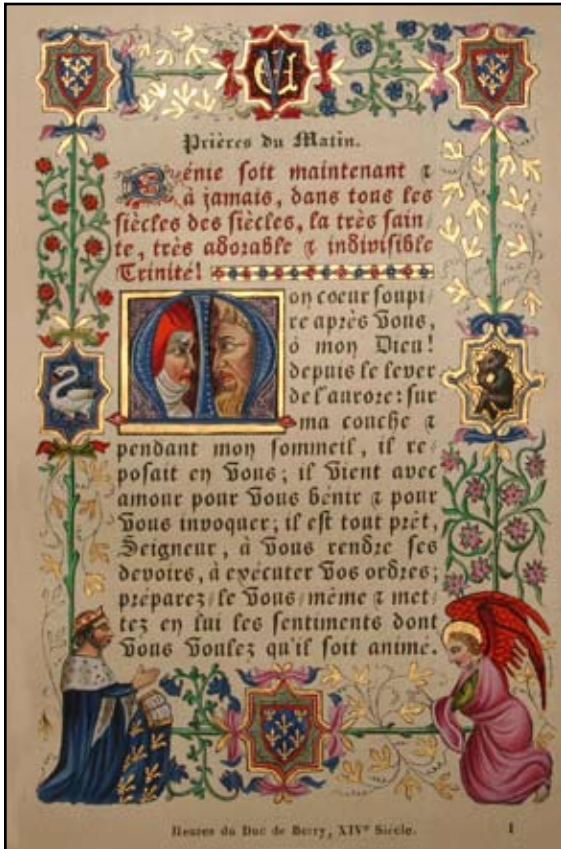 Prières du Matin.
Bénie soit maintenant &
à jamais, dans tous les
siècles des siècles, la très sain-
te, très adorable & indivisible
Trinité!
Mon coeur soupi-
re après Vous,
ô mon Dieu!
depuis le lever
de l'aurore: sur
ma couche &
pendant mon sommeil, il re-
posait en Vous; il vient avec
amour pour Vous bénir & pour
Vous invoquer; il est tout prêt,
Seigneur, à Vous rendre ses
devoirs, à exécuter Vos ordres;
préparez-le Vous-même & met-
tez en lui les sentiments dont
Vous Voulez qu'il soit animé.
Heures du Duc de Berry, XIVe Siècle. 1